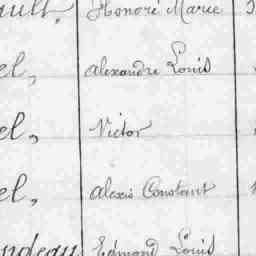 ault, Honoré Marie
el, Alexandre Louis
el, Victor
el, Alexis Constant
ndeau Edmond Louis